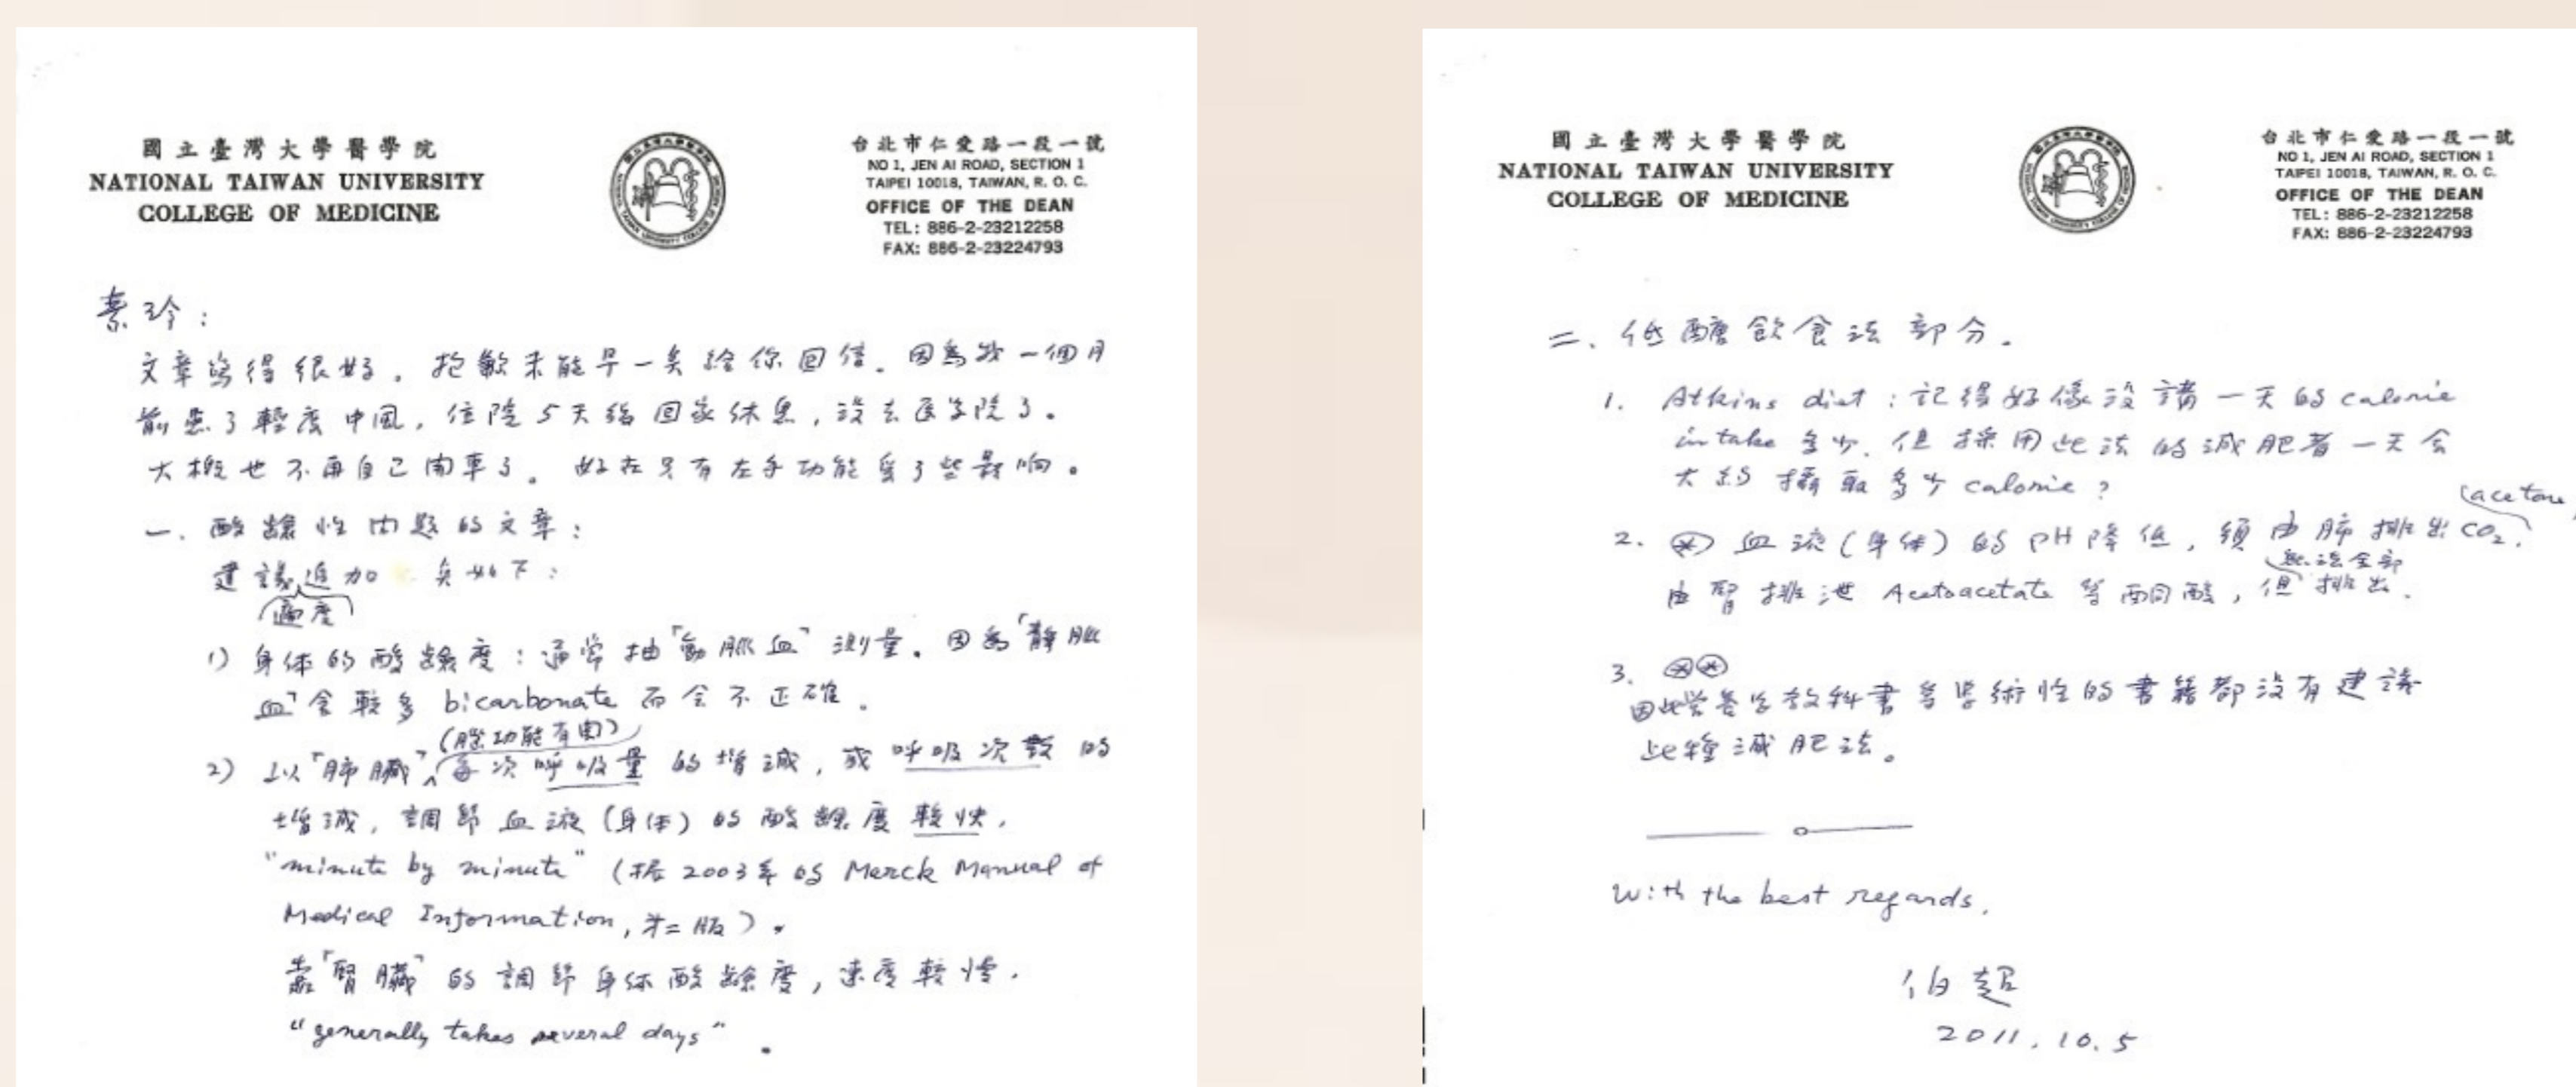 國立臺灣大學醫學院
NATIONAL TAIWAN UNIVERSITY
COLLEGE OF MEDICINE
台北市仁愛路一段一號
NO 1, JEN AI ROAD, SECTION 1
TAIPEI 10018, TAIWAN, R. O. C.
OFFICE OF THE DEAN
TEL: 886-2-23212258
FAX: 886-2-23224793
素玲:
文章寫得很好。抱歉未能早一點給你回信。因為我一個月
前患了輕度中風,住院5天後回家休息,沒去医学院了。
大概也不再自己開車了。好在只有左手功能受了些影响。
一. 酸鹼性问题的文章:
建議追加 点如下:
(適度)
1) 身体的酸鹼度:通常抽「動脈血」測量。因為「靜脈
血」含較多 bicarbonate 而会不正確。
(腦功能有関)
2) 以「肺臟」每次呼吸量的增減,或呼吸次数的
增減,調節血液(身体)的酸鹼度較快.
"minute by minute" (據2003年的 Merck Manual of
Medical Information, 第二版)。
靠「腎臟」的調節身体酸鹼度,速度較慢.
"generally takes several days".
國立臺灣大學醫學院
NATIONAL TAIWAN UNIVERSITY
COLLEGE OF MEDICINE
台北市仁愛路一段一號
NO 1, JEN AI ROAD, SECTION 1
TAIPEI 10018, TAIWAN, R. O. C.
OFFICE OF THE DEAN
TEL: 886-2-23212258
FAX: 886-2-23224793
二. 低醣飲食法部分.
1. Atkins diet:記得好像沒講一天的 calorie
intake 多少. 但採用此法的減肥者一天会
大約攝取多少 calorie?
(acetone
2. ⊛ 血液(身体)的 pH 降低,須由肺排出 CO₂.
無法全部
由腎排泄 Acetoacetate 等酮酸,但排出.
3. ⊛⊛
因此営養学教科書等学術性的書籍都沒有建議
此種減肥法。
With the best regards.
伯超
2011.10.5